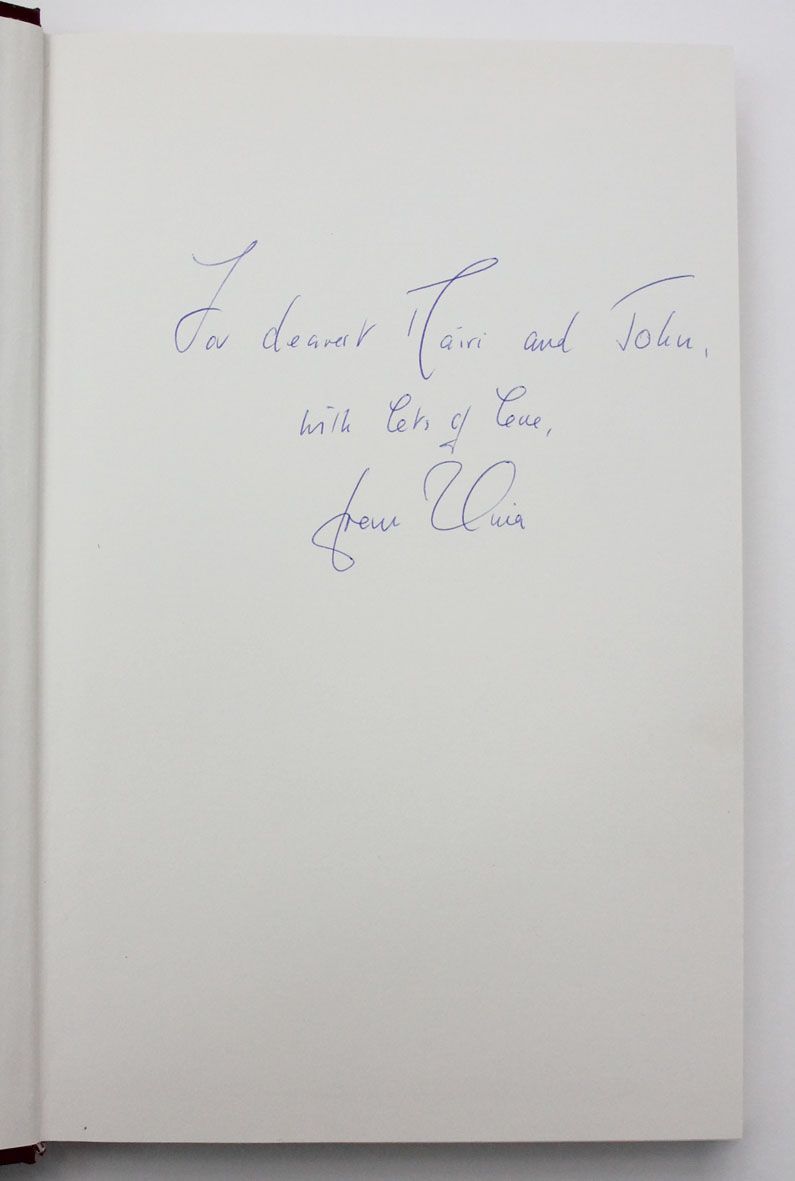 For dearest Máiri and John,
with lots of love,
from